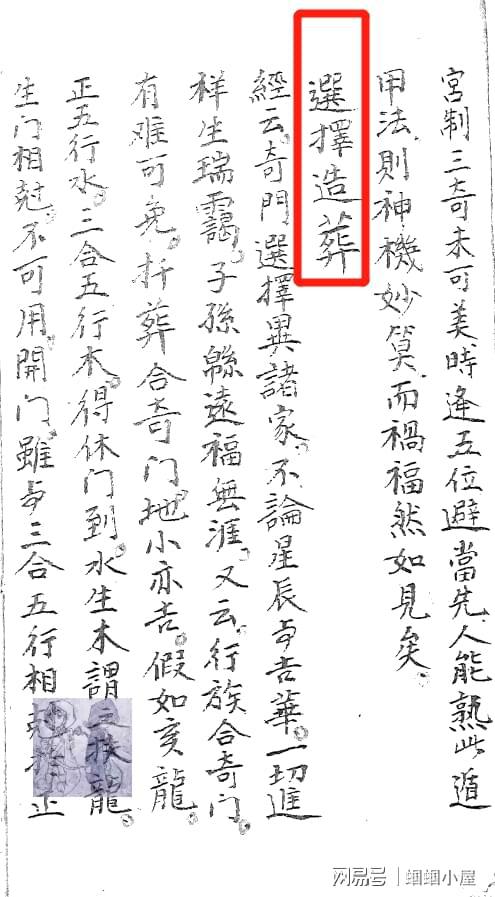 宮制三奇未可美時逢五位避當先人能熟此遁
用法則神機妙算而禍福然如見矣。
選擇造葬
經云奇門選擇異諸家。不論星辰与吉華。一切進
祥生瑞靄。子孫綿遠福無涯。又云行族合奇門。
有难可免。扦葬合奇门。地小亦吉。假如亥龍。
正五行水。三合五行木。得休门到。水生木謂龍。
生门相尅。不可用。開门。雖与三合五行相正
网易号 | 蝈蝈小屋